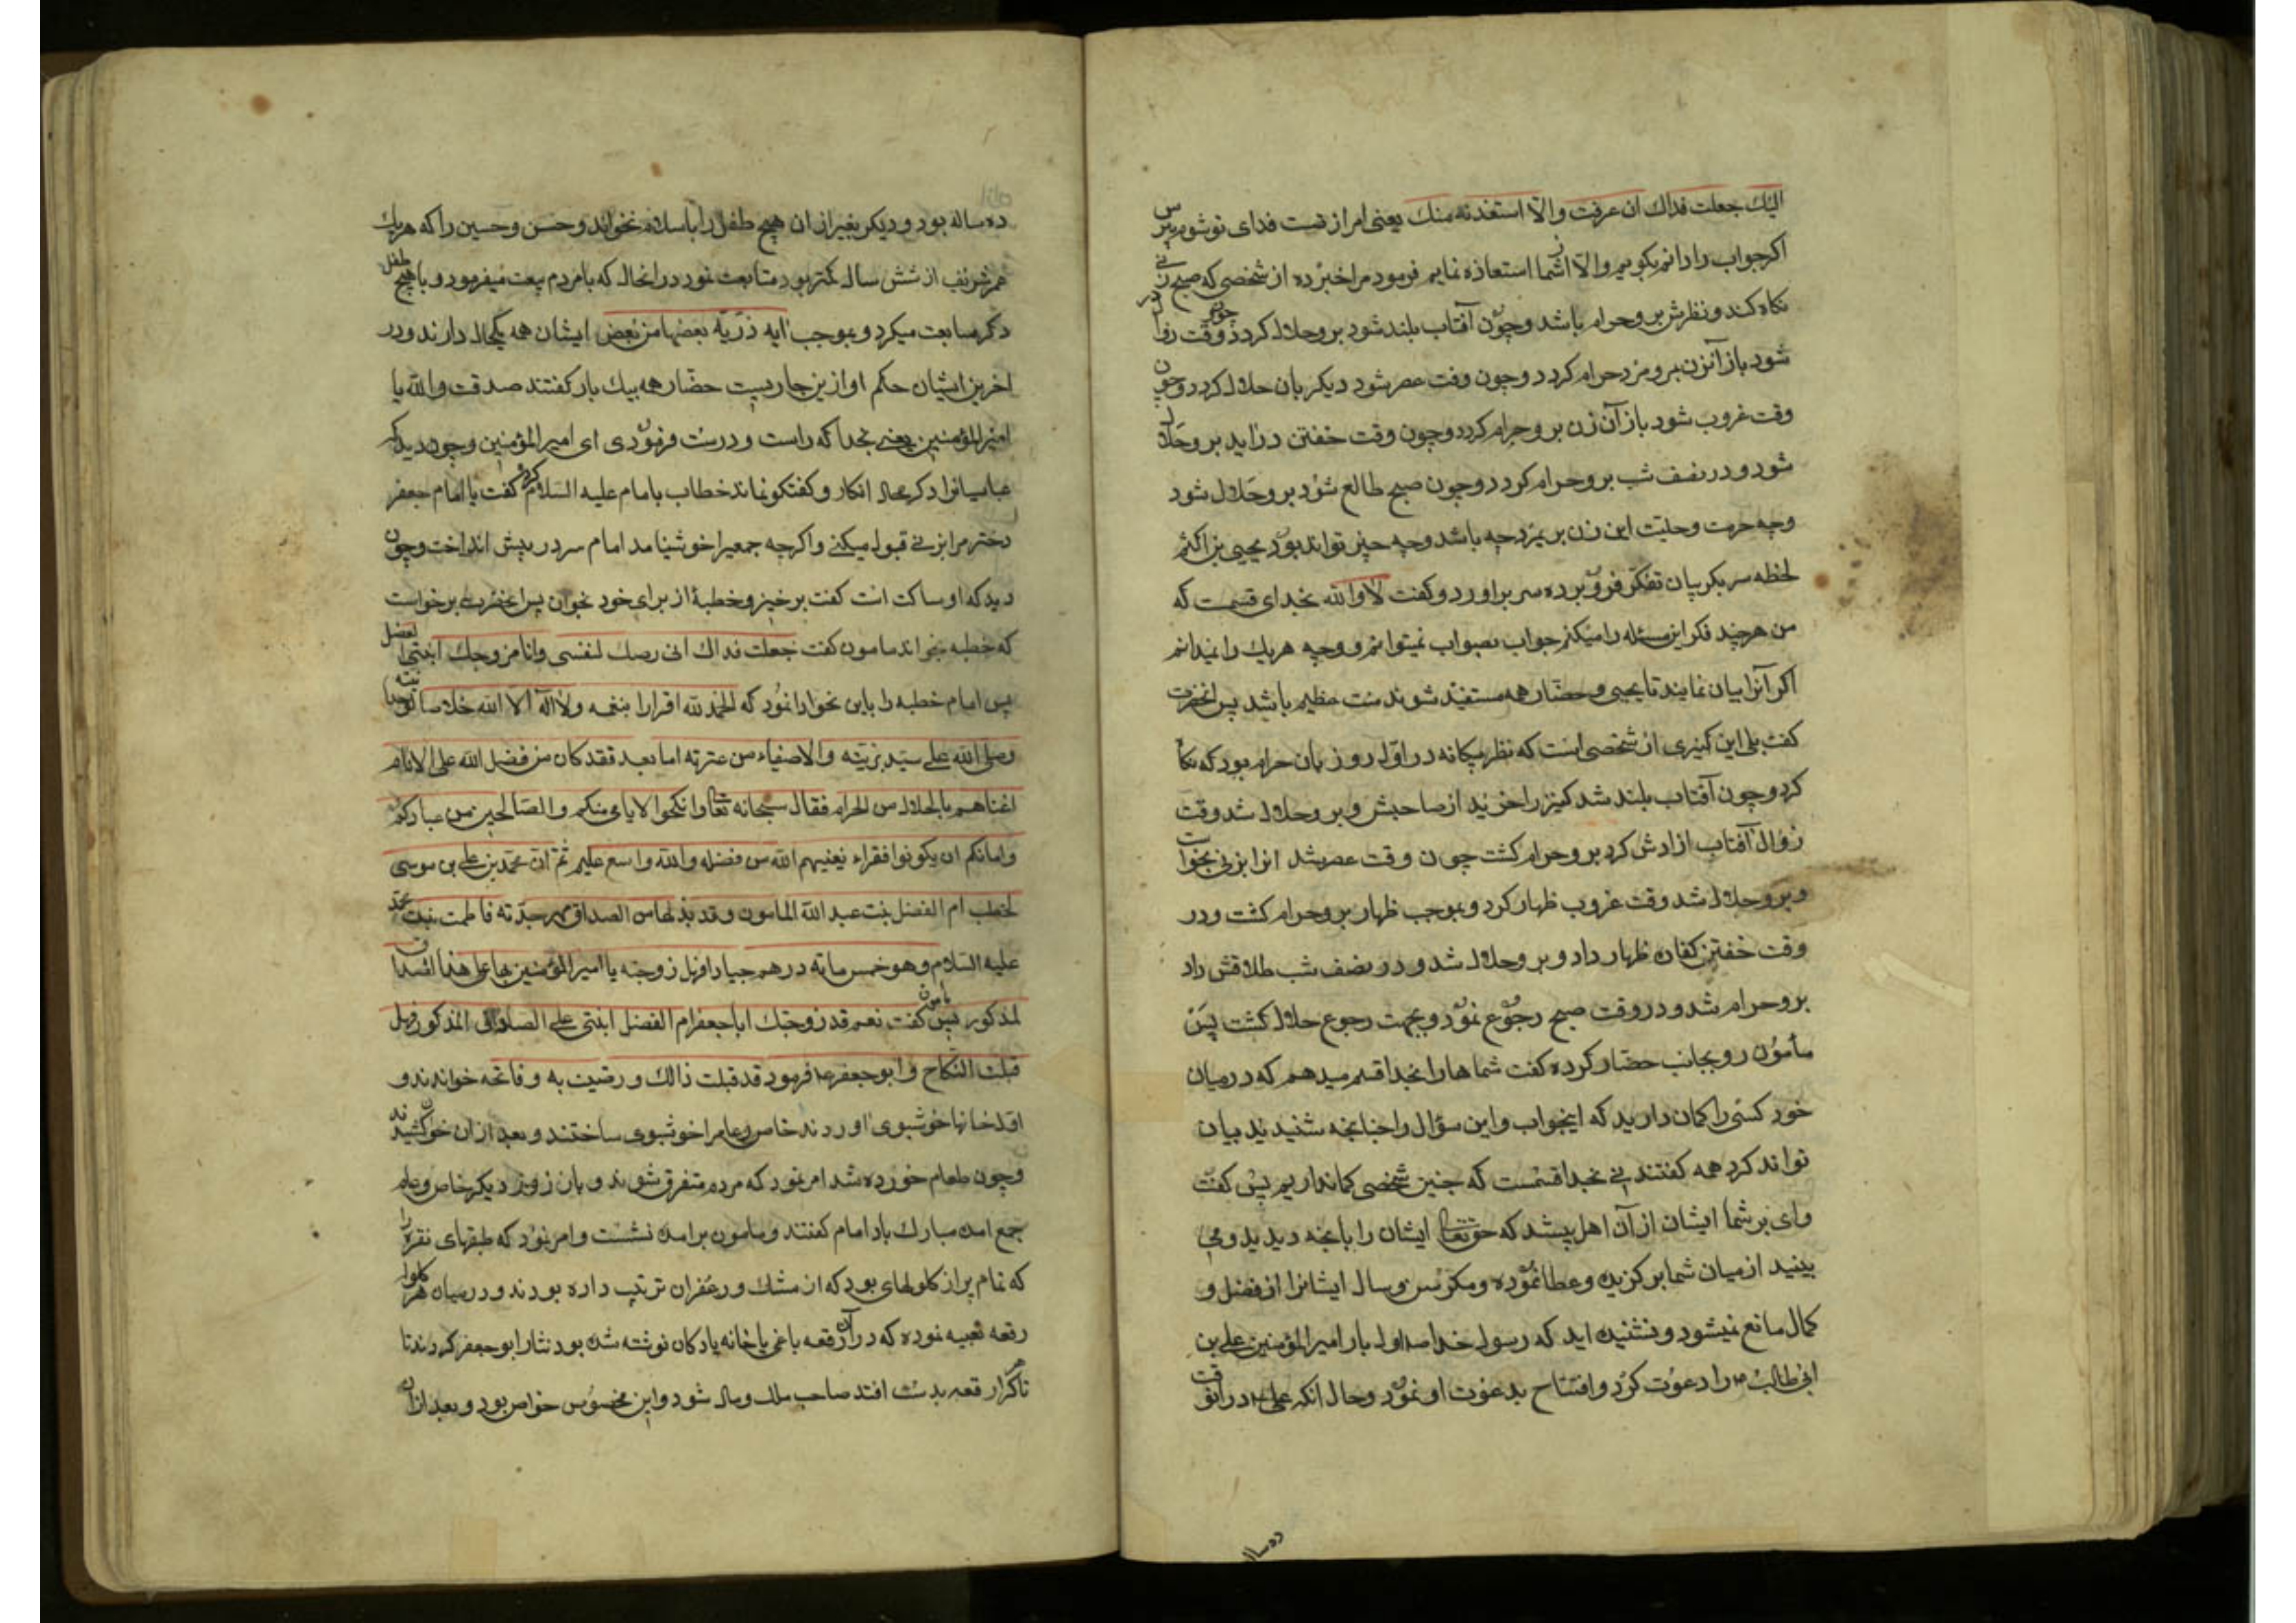 الیك جعلت فداك ان عرفت والّا استفدته منك یعنی امر از تست فدای تو شوم بپرس
اکر جواب را دانم بکویم والّا از شما استعاذه نمایم فرمود مرا خبر ده از شخصی که صبح زنی
نکاه کند و نظرش برو حرام باشد و چون آفتاب بلند شود برو حلال کردد و چون وقت زوال
شود باز آنزن برو مزد حرام کردد و چون وقت عصر شود دیکر بان حلال کردد و چون
وقت غروب شود باز آن زن برو حرام کردد و چون وقت خفتن دراید برو حلال
شود و در نصف شب برو حرام کردد و چون صبح طالع شود برو حلال شود
وجه حرمت وحلیّت این زن برین مزد چه باشد وچه چیز تواند بود یحیی بن اکثم
لحظه سر بکریبان تفکّر فرو برده سر براورد و کفت لا والله بخدای قسمت که
من هرچند فکر این مسئله را میکنم جواب بصواب نمیتوانم و وجه هریك را نمیدانم
اکر آنرا بیان نمایند تا یحیی و حضّار همه مستفید شوند منت عظیم باشد پس انحضرت
کفت بلی این کنیزی از شخصی است که نظر بیکانه در اوّل روز بان حرام بود که نکا
کرد و چون آفتاب بلند شد کنیز را خرید از صاحبش و برو حلال شد وقت
زوال آفتاب ازادش کرد برو حرام کشت چون وقت عصر شد انرا بزنی بخواست
و برو حلال شد وقت غروب ظهار کرد و بموجب ظهار برو حرام کشت و در
وقت خفتن کفاره ظهار داد و برو حلال شد و در نصف شب طلاقش داد
برو حرام شد و در وقت صبح رجوع نمود و بجهت رجوع حلال کشت پس
مأمون رو بجانب حضّار کرده کفت شماها را بخدا قسم میدهم که در میان
خود کسی را کمان دارید که اینجواب و این سؤال را چنانچه شنیدید بیان
تواند کرد همه کفتند نی بخدا قسمست که چنین شخصی کمان نداریم پس کفت
وای بر شما ایشان از آن اهل بیتند که حق تعالی ایشان را بانچه دیدید و می
بینید از میان شما برکزیده و عطا نموده و مکر سن و سال ایشانرا از فضل و
کمال مانع نمیشود و نشنیده اید که رسول خدا ص اول بار امیر المؤمنین علی بن
ابی طالب ع را دعوت کرد و افتتاح بدعوت او نمود و حال انکه علی ع در انوقت
ده سال
ده ساله بود و دیکر بغیر از ان هیچ طفل را باسلام نخواند و حسن و حسین را که هریك
عمر شریف از شش سال کمتر بود متابعت نمود در انحال که با مردم بیعت میفرمود و با هیچ طفل
دکر مبایعت میکرد و بموجب ایه ذرّیّة بعضها من بعض ایشان همه یکحال دارند و در
اخرین ایشان حکم اوازین جاریست حضّار همه بیك بار کفتند صدقت والله یا
امیر المؤمنین یعنی بخدا که راست و درست فرمودی ای امیر المؤمنین و چون دید که
عباسیانرا دکر مجال انکار و کفتکو نماند خطاب بامام علیه السلام کرده کفت یا امام جعفر
دختر مرا بزنی قبول میکنی و اکرچه جمعیرا خوش نیامد امام سر در پیش انداخت و چون
دید که او ساکت است کفت برخیز و خطبهٔ از برای خود بخوان پس انحضرت برخواست
که خطبه بخواند مامون کفت جعلت فداك انی رضیك لنفسی وانا مزوجك ابنتی لفضل
پس امام خطبه را باین نحو ادا نمود که الحمد لله اقرارا بنعمه ولا اله الا الله خلاصا لوحدانیته
وصلی الله علی سیّد بریّته والاصفیاء من عترته اما بعد فقد کان من فضل الله علی الانام
اغناهم بالحلال من الحرام فقال سبحانه تعالی وانکحوا الایامی منکم والصّالحین من عبادکم
وامائکم ان یکونوا فقراء یغنیهم الله من فضله والله واسع علیم ثم انّ محمّد بن علی بن موسی
یخطب ام الفضل بنت عبد الله المامون وقد بذلها من الصداق مهر جدّته فاطمت بنت محمّد
علیه السّلام وهو خمس مائه درهم جیادا فهل زوجته یا امیر المؤمنین بها علی هذا الصداق
لمذکور پس مامون کفت نعم قد زوجتك ابا جعفر ام الفضل ابنتی علی الصداق المذکور فهل
قبلت النّکاح وابو جعفر ع فرمود قد قبلت ذالك ورضیت به و فاتحه خواندند و
اوّل خانها خوشبوی اوردند خاص و عام را خوشبوی ساختند و بعد از ان خوان کشیدند
و چون طعام خورده شد امر نمود که مردم متفرق شوند و بان روز دیکر خاص و عام
جمع امده مبارك باد امام کفتند و مامون برامده نشست و امر نمود که طبقهای نقره را
که تمام پر از کلولهای بود که از مشك و زعفران ترتیب داده بودند و در میان هر کلوله
رقعه تعبیه نموده که در آن رقعه باغی یا خانه یا دکان نوشته شده بود نثار ابو جعفر کردند تا
تا هر کرا رقعه بدست افتد صاحب ملك و مال شود و این مخصوص خواص بود و بعد ازان